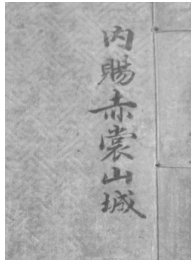 内賜赤裳山城